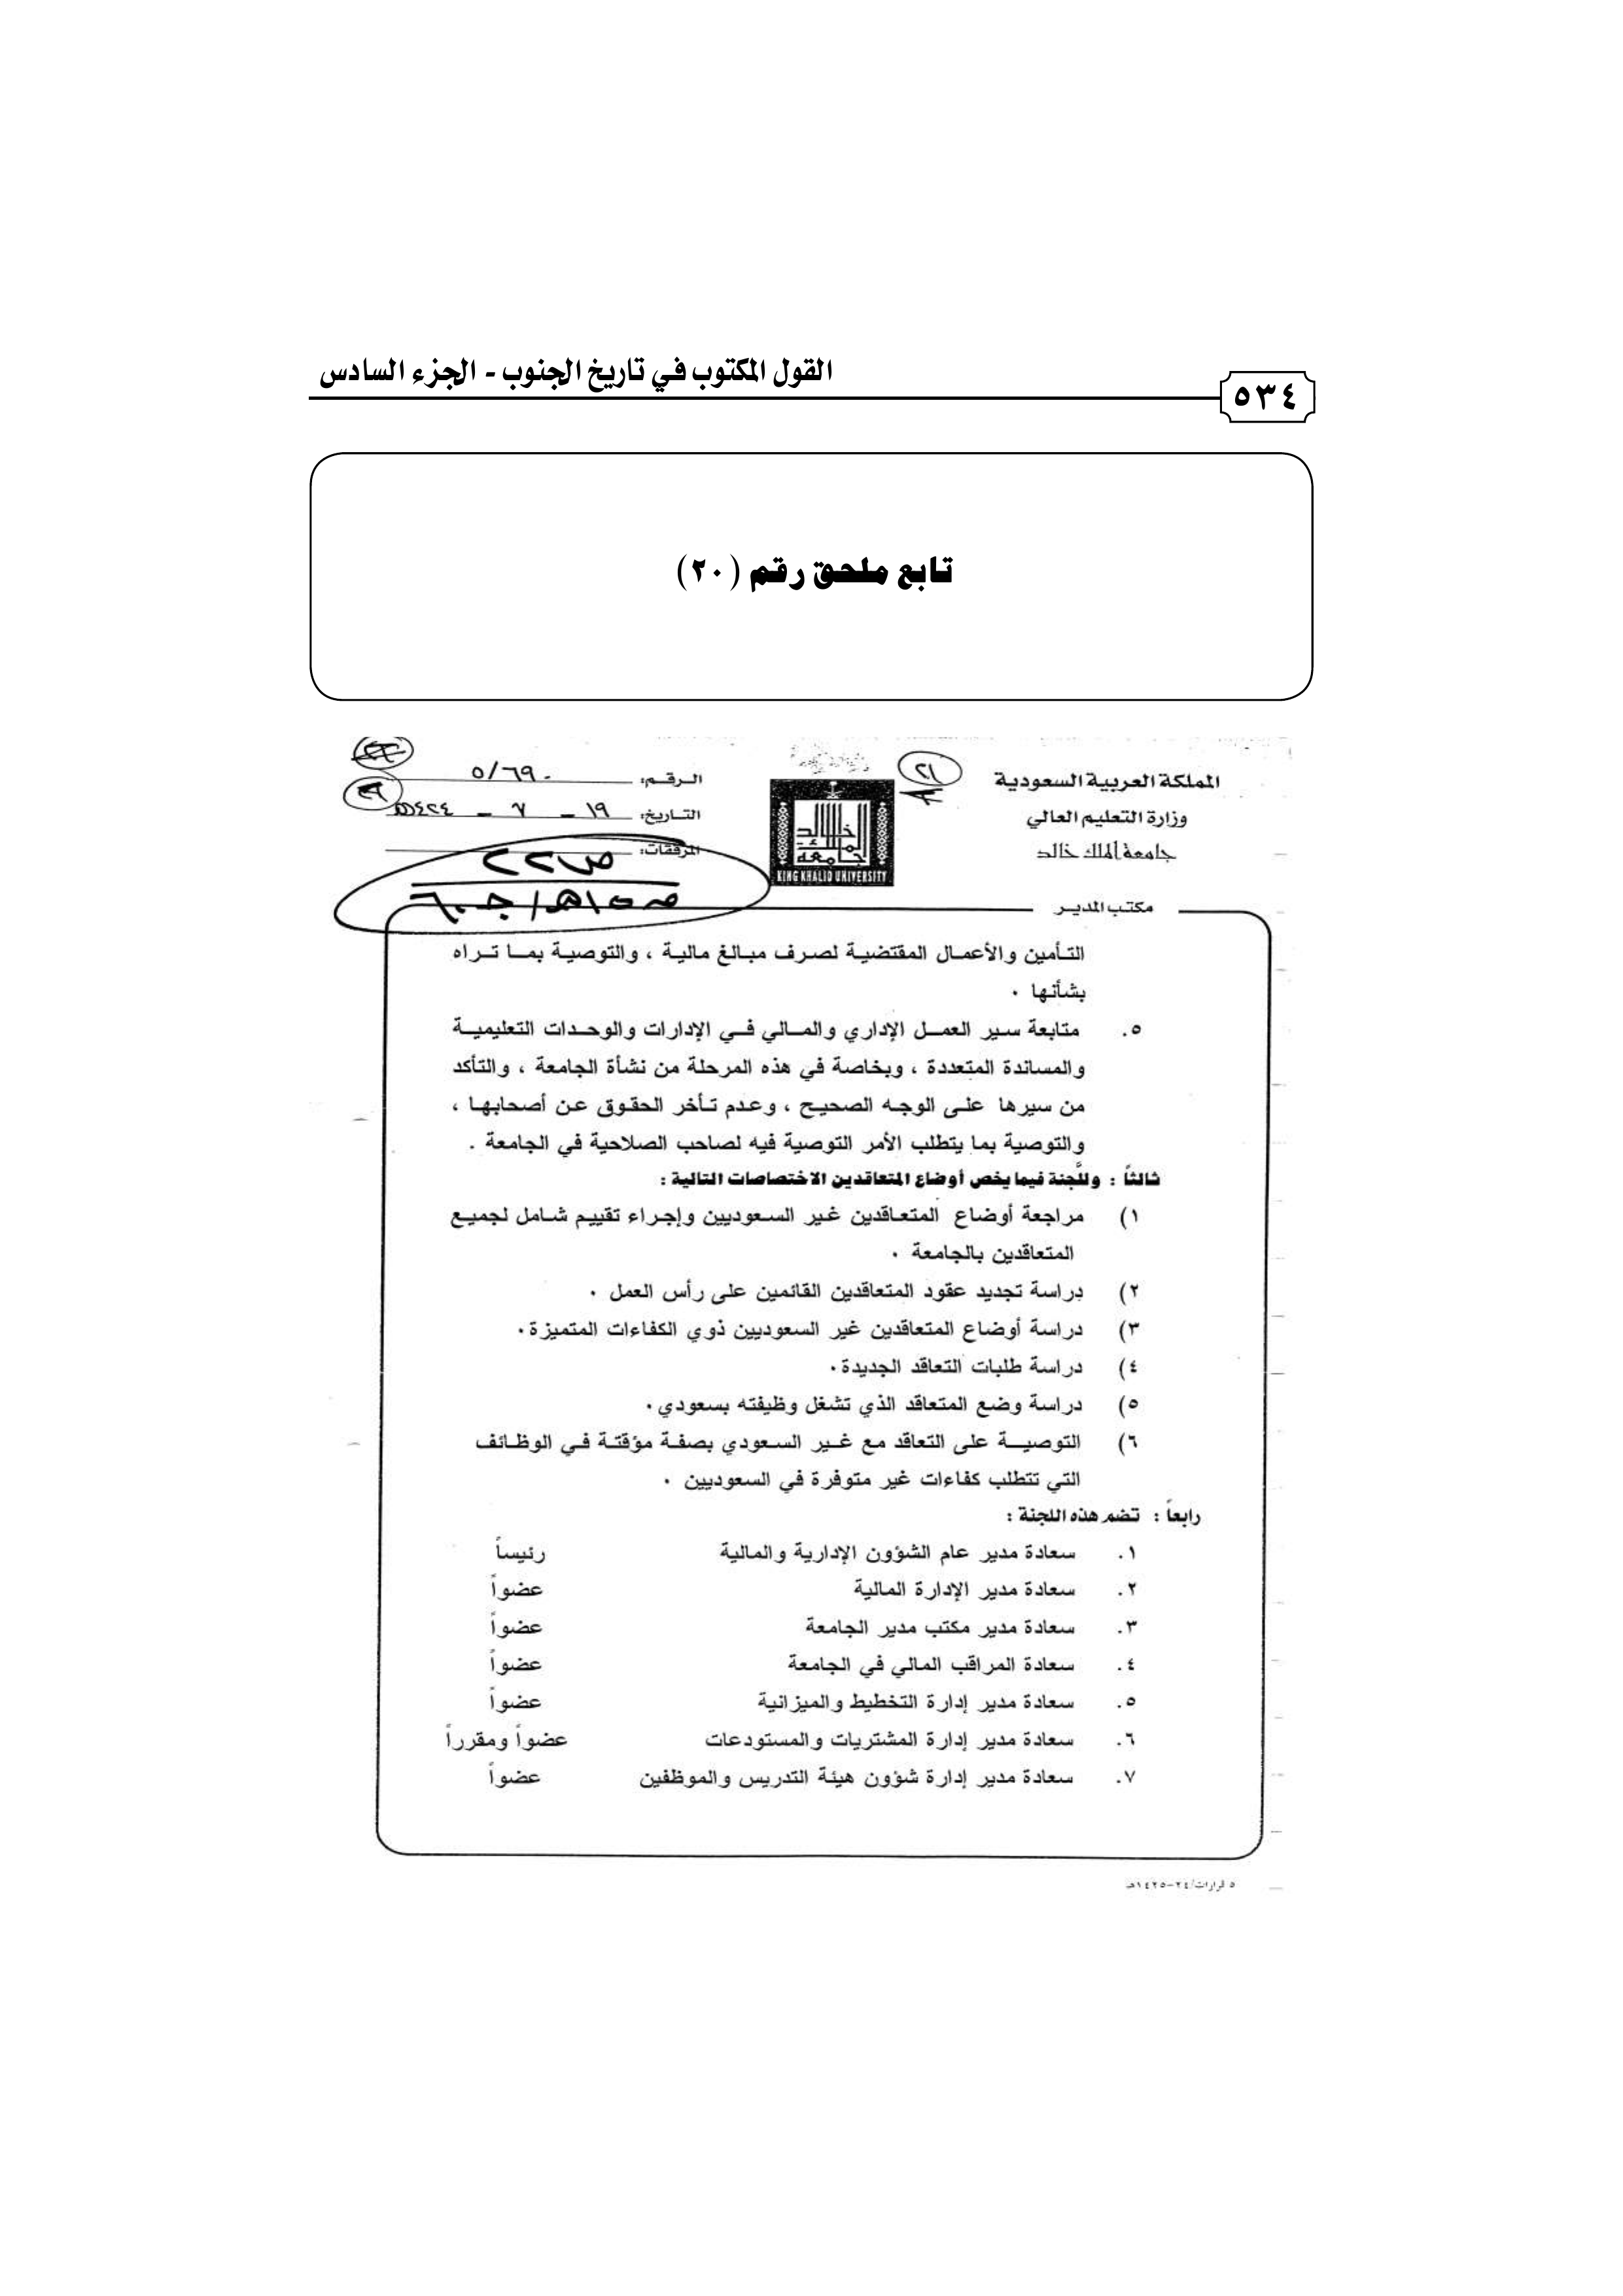 القول المكتوب في تاريخ الجنوب - الجزء السادس
٥٣٤
تابع ملحق رقم (٢٠)
المملكة العربية السعودية
وزارة التعليم العالي
جامعة الملك خالد
مكتب المدير
٢١
جامعة الملك خالد
KING KHALID UNIVERSITY
الرقم: ٥/٦٩٠
التاريخ: ١٩ - ٧ - ١٤٢٤هـ
المرفقات:
ص٢٢
التأمين والأعمال المقتضية لصرف مبالغ مالية ، والتوصية بما تراه
بشأنها .
٥. متابعة سير العمل الإداري والمالي في الإدارات والوحدات التعليمية
والمساندة المتعددة ، وبخاصة في هذه المرحلة من نشأة الجامعة ، والتأكد
من سيرها على الوجه الصحيح ، وعدم تأخر الحقوق عن أصحابها ،
والتوصية بما يتطلب الأمر التوصية فيه لصاحب الصلاحية في الجامعة .
ثالثاً : وللّجنة فيما يخص أوضاع المتعاقدين الاختصاصات التالية :
١) مراجعة أوضاع المتعاقدين غير السعوديين وإجراء تقييم شامل لجميع
المتعاقدين بالجامعة .
٢) دراسة تجديد عقود المتعاقدين القائمين على رأس العمل .
٣) دراسة أوضاع المتعاقدين غير السعوديين ذوي الكفاءات المتميزة.
٤) دراسة طلبات التعاقد الجديدة.
٥) دراسة وضع المتعاقد الذي تشغل وظيفته بسعودي.
٦) التوصية على التعاقد مع غير السعودي بصفة مؤقتة في الوظائف
التي تتطلب كفاءات غير متوفرة في السعوديين .
رابعاً : تضم هذه اللجنة :
١. سعادة مدير عام الشؤون الإدارية والمالية رئيساً
٢. سعادة مدير الإدارة المالية عضواً
٣. سعادة مدير مكتب مدير الجامعة عضواً
٤. سعادة المراقب المالي في الجامعة عضواً
٥. سعادة مدير إدارة التخطيط والميزانية عضواً
٦. سعادة مدير إدارة المشتريات والمستودعات عضواً ومقرراً
٧. سعادة مدير إدارة شؤون هيئة التدريس والموظفين عضواً
٥ قرارات/٢٤-١٤٢٥هـ